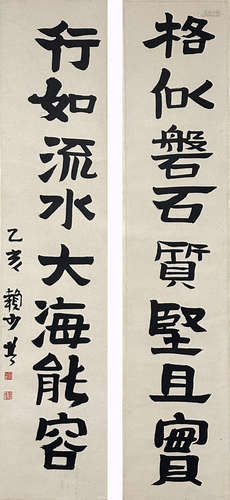 格似磐石質堅且實
行如流水大海能容
乙亥 賴少其